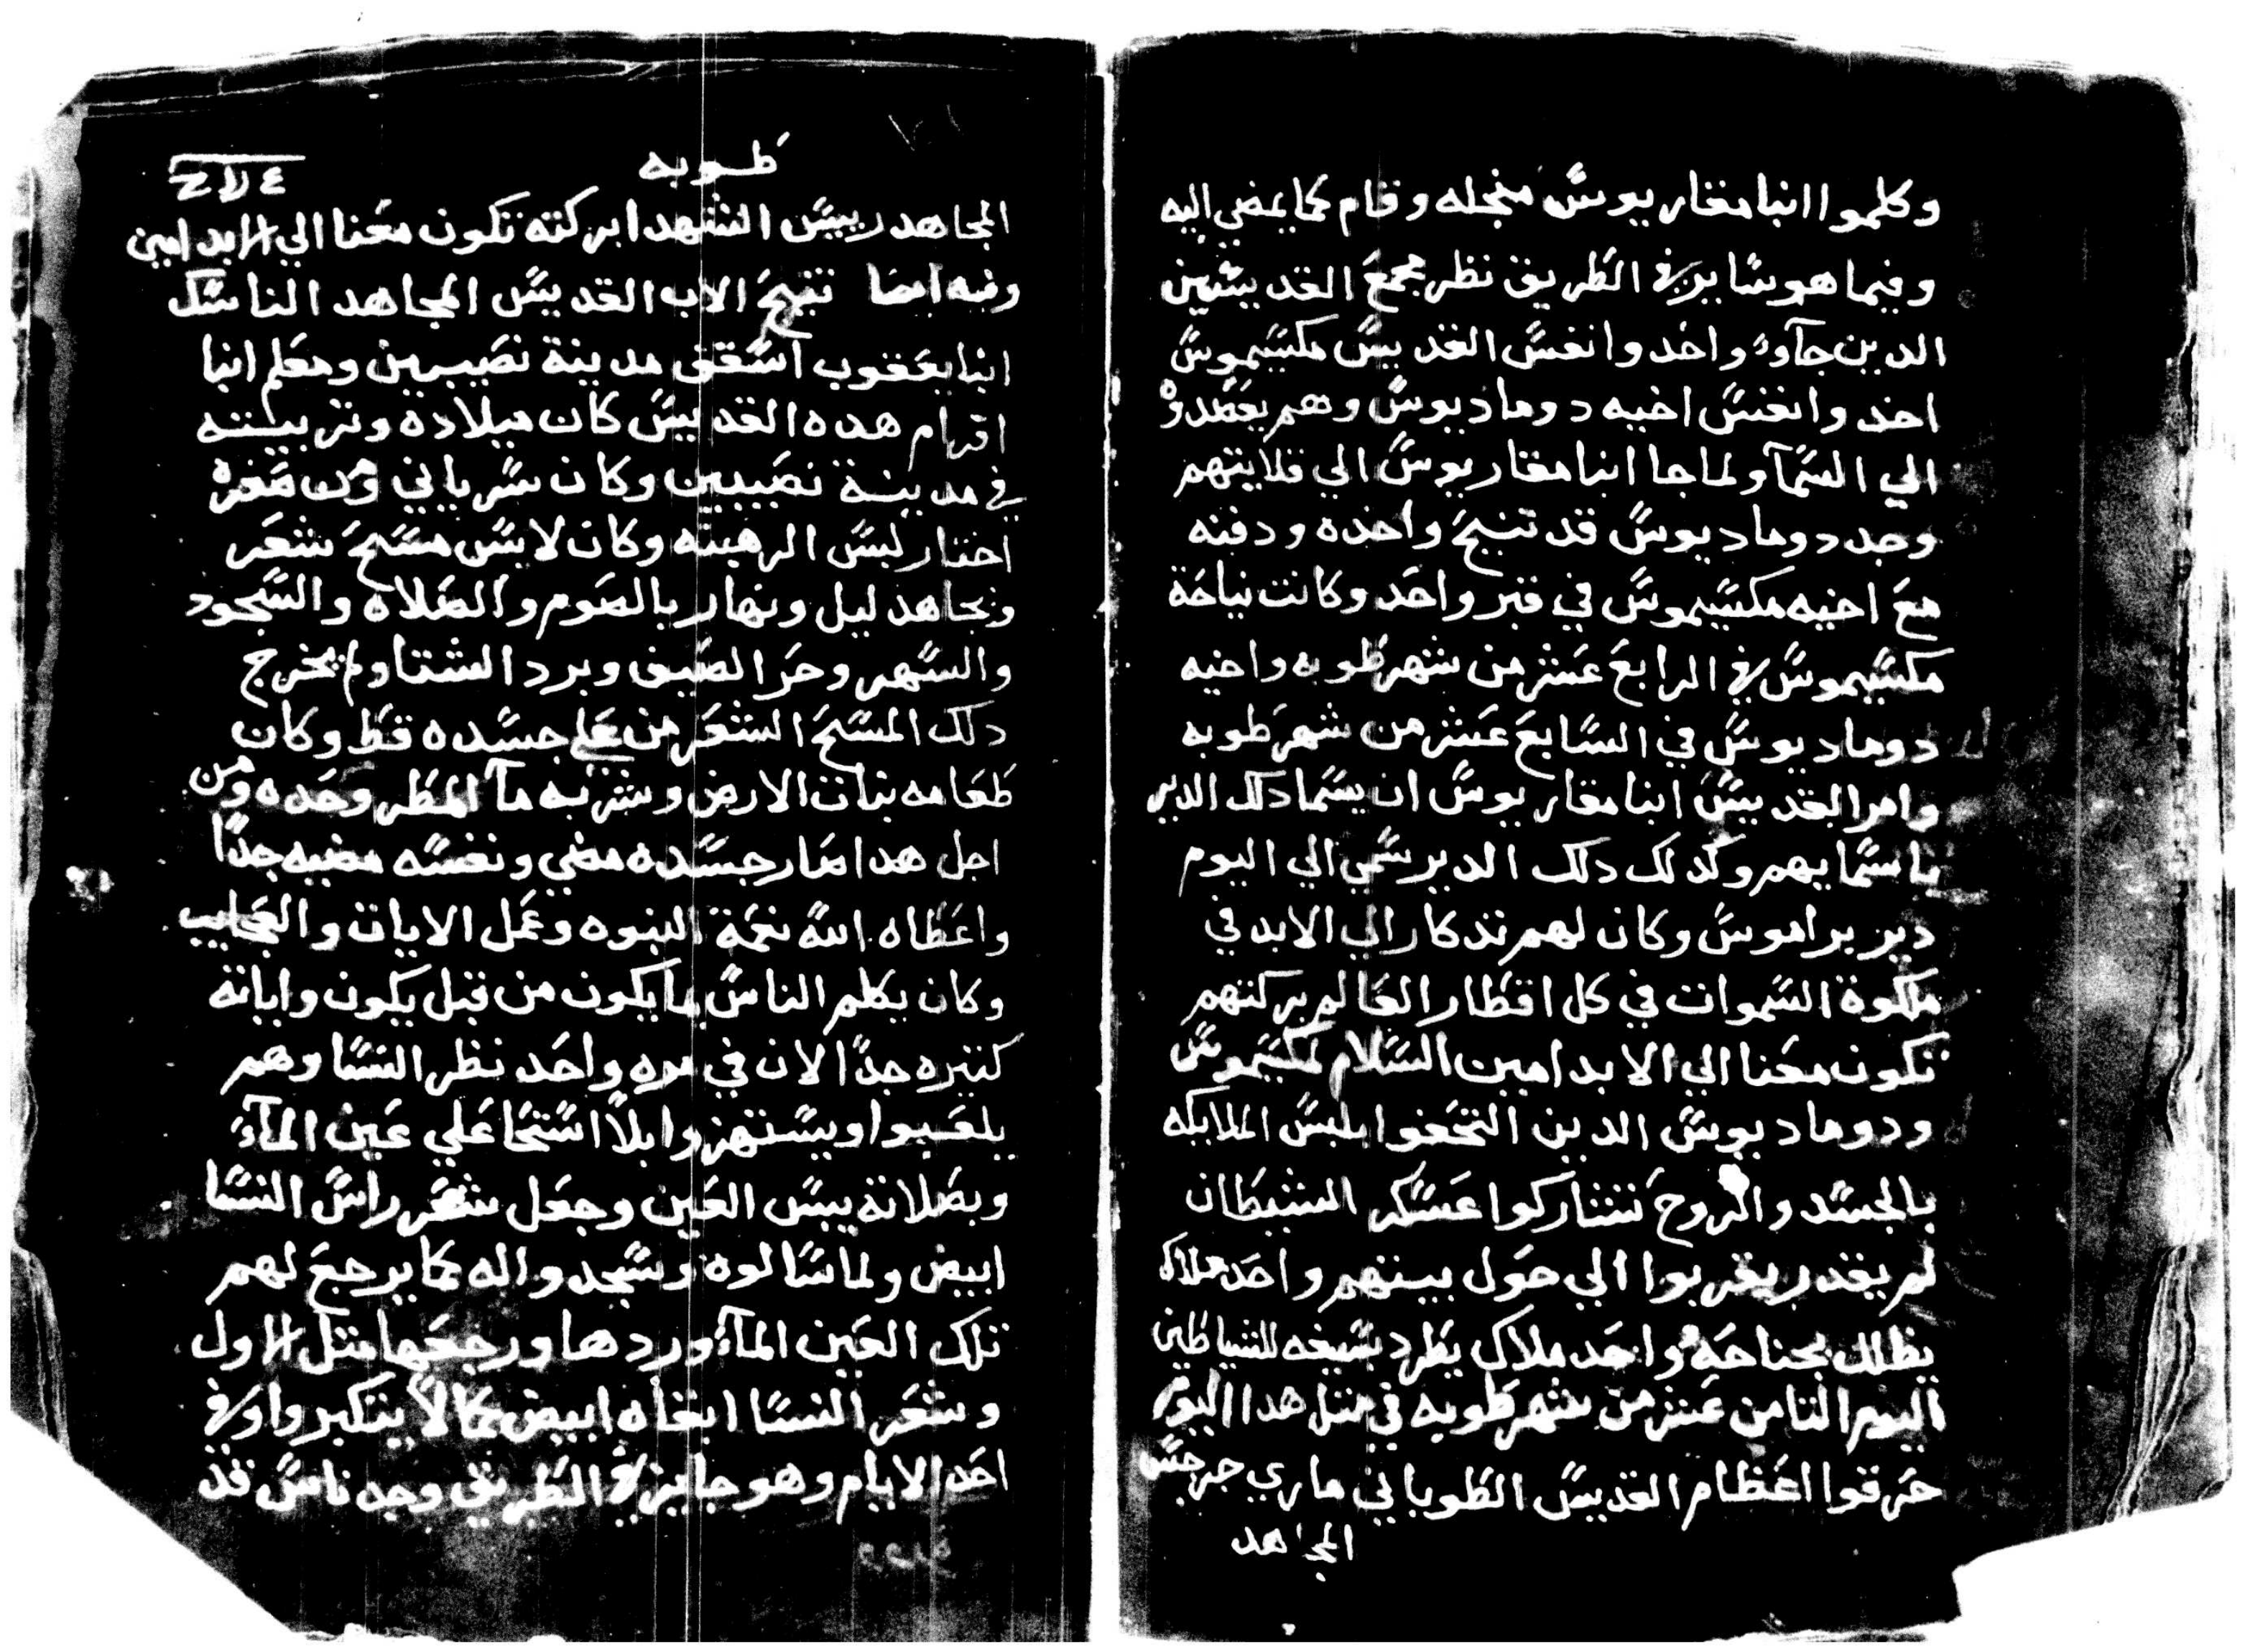 وكلموا انبا مقاريوس منجله وقام كما يمضي اليه
وفيما هو ساير في الطريق نظر مجمع القديسين
الدين جآوُ واخد وانفس القديس مكسيموس
اخد وانفس اخيه دوماديوس وهم يصعدوْ
الي السمآ ولما جا انبا مقاريوس الي قلايتهم
وجد دوماديوس قد تنيح واخده ودفنه
مع اخيه مكسيموس في قبر واحد وكانت نياحة
مكسيموس في الرابع عشر من شهر طوبه واخيه
دوماديوس في السابع عشر من شهر طوبه
وامر القديس ابنا مقاريوس ان يسما دلك الدير
باسمايهم وكدلك دلك الدير سمي الي اليوم
دير براموس وكان لهم تدكار الي الابد في
ملكوة السموات في كل اقطار العالم بركتهم
تكون معنا الي الابد امين السلام لمكسيموس
ودوماديوس الدين التحفوا بلبس الملايكه
بالجسد والروح تشاركوا عسكر الشيطان
لم يقدر يقربوا الي حول بيتهم واحد ملاك
يظلل بجناحه واحد ملاك يطرد بسيفه للشياطين
اليوم التامن عشر من شهر طوبه في متل هدا اليوم
حرقوا اعظام القديس الطوباني ماري جرجس
المجاهد
طوبه
المجاهد رييس الشهدا بركته تكون معنا الي الابد امين
وفيه ايضا تنيح الاب القديس المجاهد الناسك
انبا يعقوب اسقف مدينة نصيبين ومعلم انبا
افرام هده القديس كان ميلاده وتربيته
في مدينة نصيبين وكان سرياني ومن صغره
اختار لبس الرهبنه وكان لابس مسح شعر
وبجاهد ليل ونهار بالصوم والصلاه والسجود
والسهر وحر الصيف وبرد الشتا ولم يخرج
دلك المسح الشعر من علي جسده قط وكان
طعامه نبات الارض وشربه مآ المطر وحده ومن
اجل هدا صار جسده مضي ونفسه مضيه جدًا
واعطاه الله نعمة النبوه وعمل الايات والعجايب
وكان يكلم الناس بما يكون من قبل يكون واياته
كتيره جدًا الان في مره واحد نظر النسا وهم
يلعبوا ويستهزوا بلا استحا علي عين المآء
وبصلاته يبس العين وجعل شعر راس النسا
ابيض ولما سالوه وسجدوا له كما يرجع لهم
تلك العين المآء وردها ورجعها متل الاول
وشعر النسا ابقاه ابيض كما لا يتكبروا وفي
احد الايام وهو جايز في الطريق وجد ناس قد